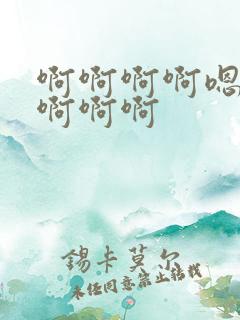 啊啊啊啊嗯
啊啊啊
錫卡莫尔
未经同意禁止转载